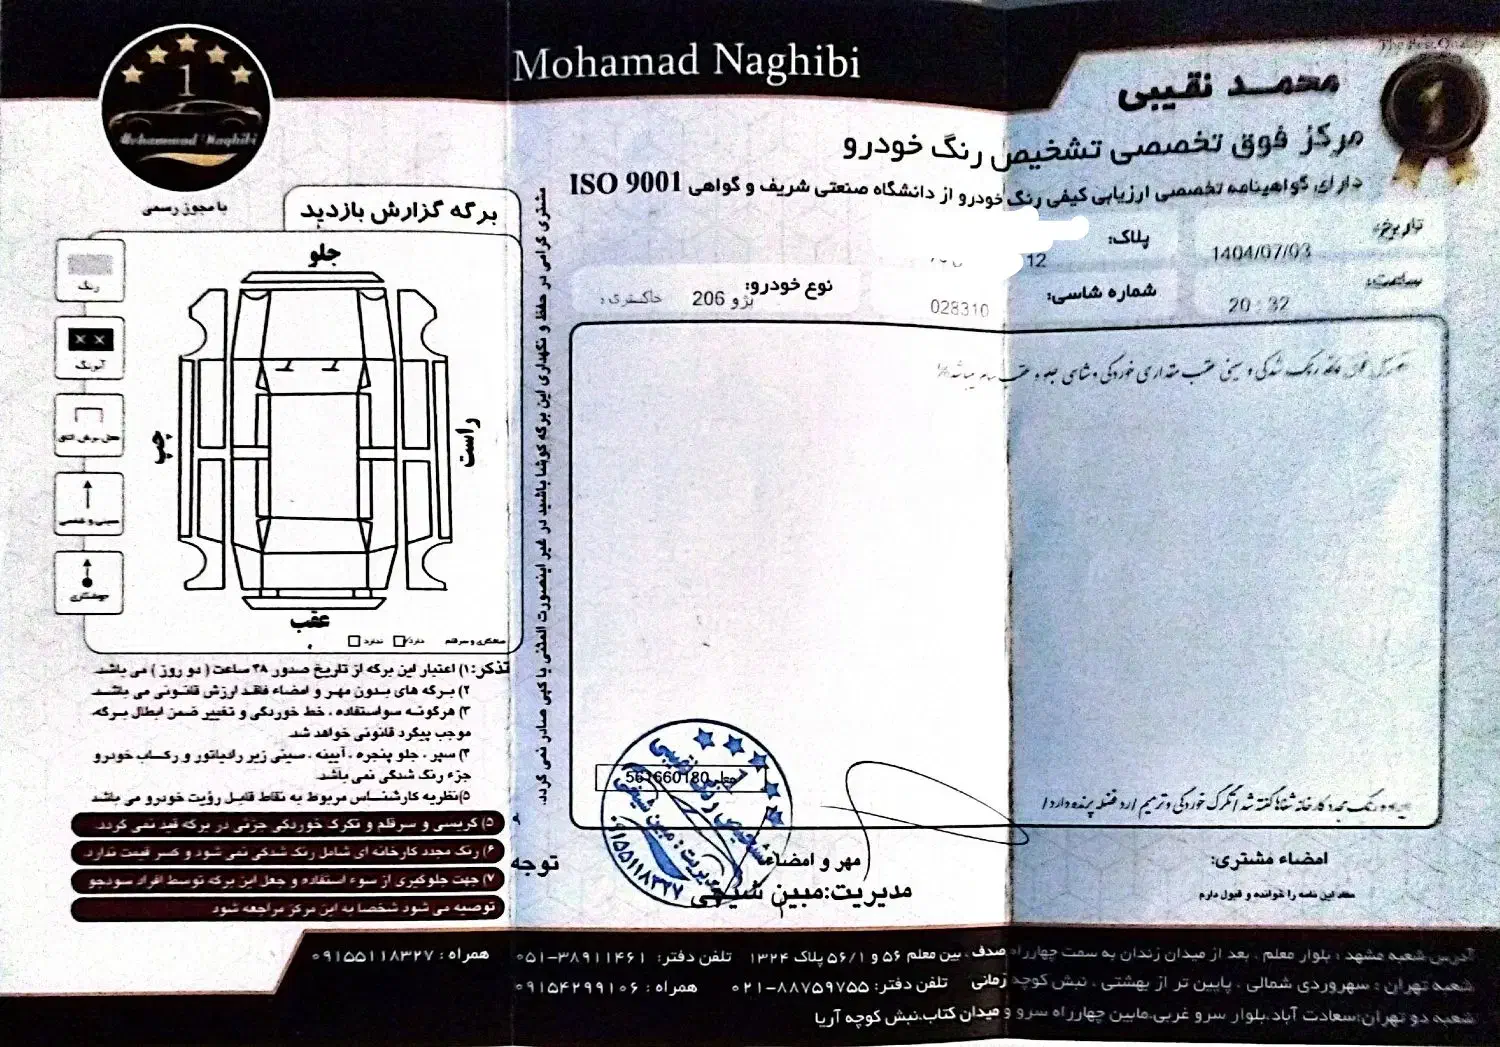 Mohamad Naghibi
محمد نقیبی
مرکز فوق تخصصی تشخیص رنگ خودرو
دارای گواهینامه تخصصی ارزیابی کیفی رنگ خودرو از دانشگاه صنعتی شریف و گواهی ISO 9001
1
Mohammad Naghibi
با مجوز رسمی
تاریخ:
1404/07/03
پلاک:
12
ساعت:
20 : 32
شماره شاسی:
028310
نوع خودرو:
پژو 206
خاکستری
برگه گزارش بازدید
جلو
چپ
راست
عقب
رنگ
آبرنگ
سینی و شاسی
جوشکاری
صافکاری و سرقلم دارد ندارد
مشتری گرامی در حفظ و نگهداری این برگه کوشا باشید در غیر اینصورت المثنی یا کپی صادر نمی گردد.
رنگ شدگی و سینی عقب مقداری خوردگی و شاسی جلو و عقب سالم میباشد
تذکر: ۱) اعتبار این برگه از تاریخ صدور ۴۸ ساعت ( دو روز ) می باشد.
۲) برگه های بدون مهر و امضاء فاقد ارزش قانونی می باشد
۳) هرگونه سواستفاده ، خط خوردگی و تغییر ضمن ابطال برگه،
موجب پیگرد قانونی خواهد شد.
۴) سپر ، جلو پنجره ، آیینه ، سینی زیر رادیاتور و رکاب خودرو
جزء رنگ شدگی نمی باشد.
۵)نظریه کارشناس مربوط به نقاط قابل رؤیت خودرو می باشد
۵) کریسی و سرقلم و تکرک خوردگی جزئی در برگه قید نمی گردد.
۶) رنگ مجدد کارخانه ای شامل رنگ شدگی نمی شود و کسر قیمت ندارد.
۷) جهت جلوگیری از سوء استفاده و جعل این برگه توسط افراد سودجو
توصیه می شود شخصا به این مرکز مراجعه شود
توجه
معلم561660180
۰۹۱۵۵۱۱۸۳۲۷
مهر و امضاء
مدیریت:مبین شیخی
امضاء مشتری:
مفاد این نامه را خوانده و قبول دارم
آدرس شعبه مشهد : بلوار معلم ، بعد از میدان زندان به سمت چهارراه صدف ، بین معلم ۵۶ و ۵۶/۱ پلاک ۱۳۲۴ تلفن دفتر: ۳۸۹۱۱۴۶۱-۰۵۱ همراه : ۰۹۱۵۵۱۱۸۳۲۷
شعبه تهران : سهروردی شمالی ، پایین تر از بهشتی ، نبش کوچه زمانی تلفن دفتر: ۸۸۷۵۹۷۵۵-۰۲۱ همراه : ۰۹۱۵۴۲۹۹۱۰۶
شعبه دو تهران:سعادت آباد،بلوار سرو غربی،مابین چهارراه سرو و میدان کتاب،نبش کوچه آریا